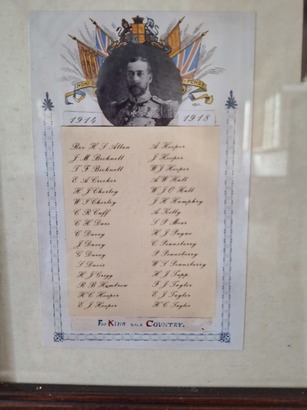 1914 1918
Rev H S Allen
J M Bicknell
T F Bicknell
E A Crocker
H J Chorley
W J Chorley
C R Cuff
C H Dare
C Davey
J Davey
G Davey
S Davis
H J Gregg
R B Hambrow
H C Hooper
E J Hooper
A Hooper
J Hooper
W J Hooper
A W Hull
W J O Hull
J H Humphry
A Kelly
S P Mear
H J Payne
C Pounsberry
P Pounsberry
W C Pounsberry
H J Tapp
F J Taylor
E J Taylor
H C Taylor
For King and Country.